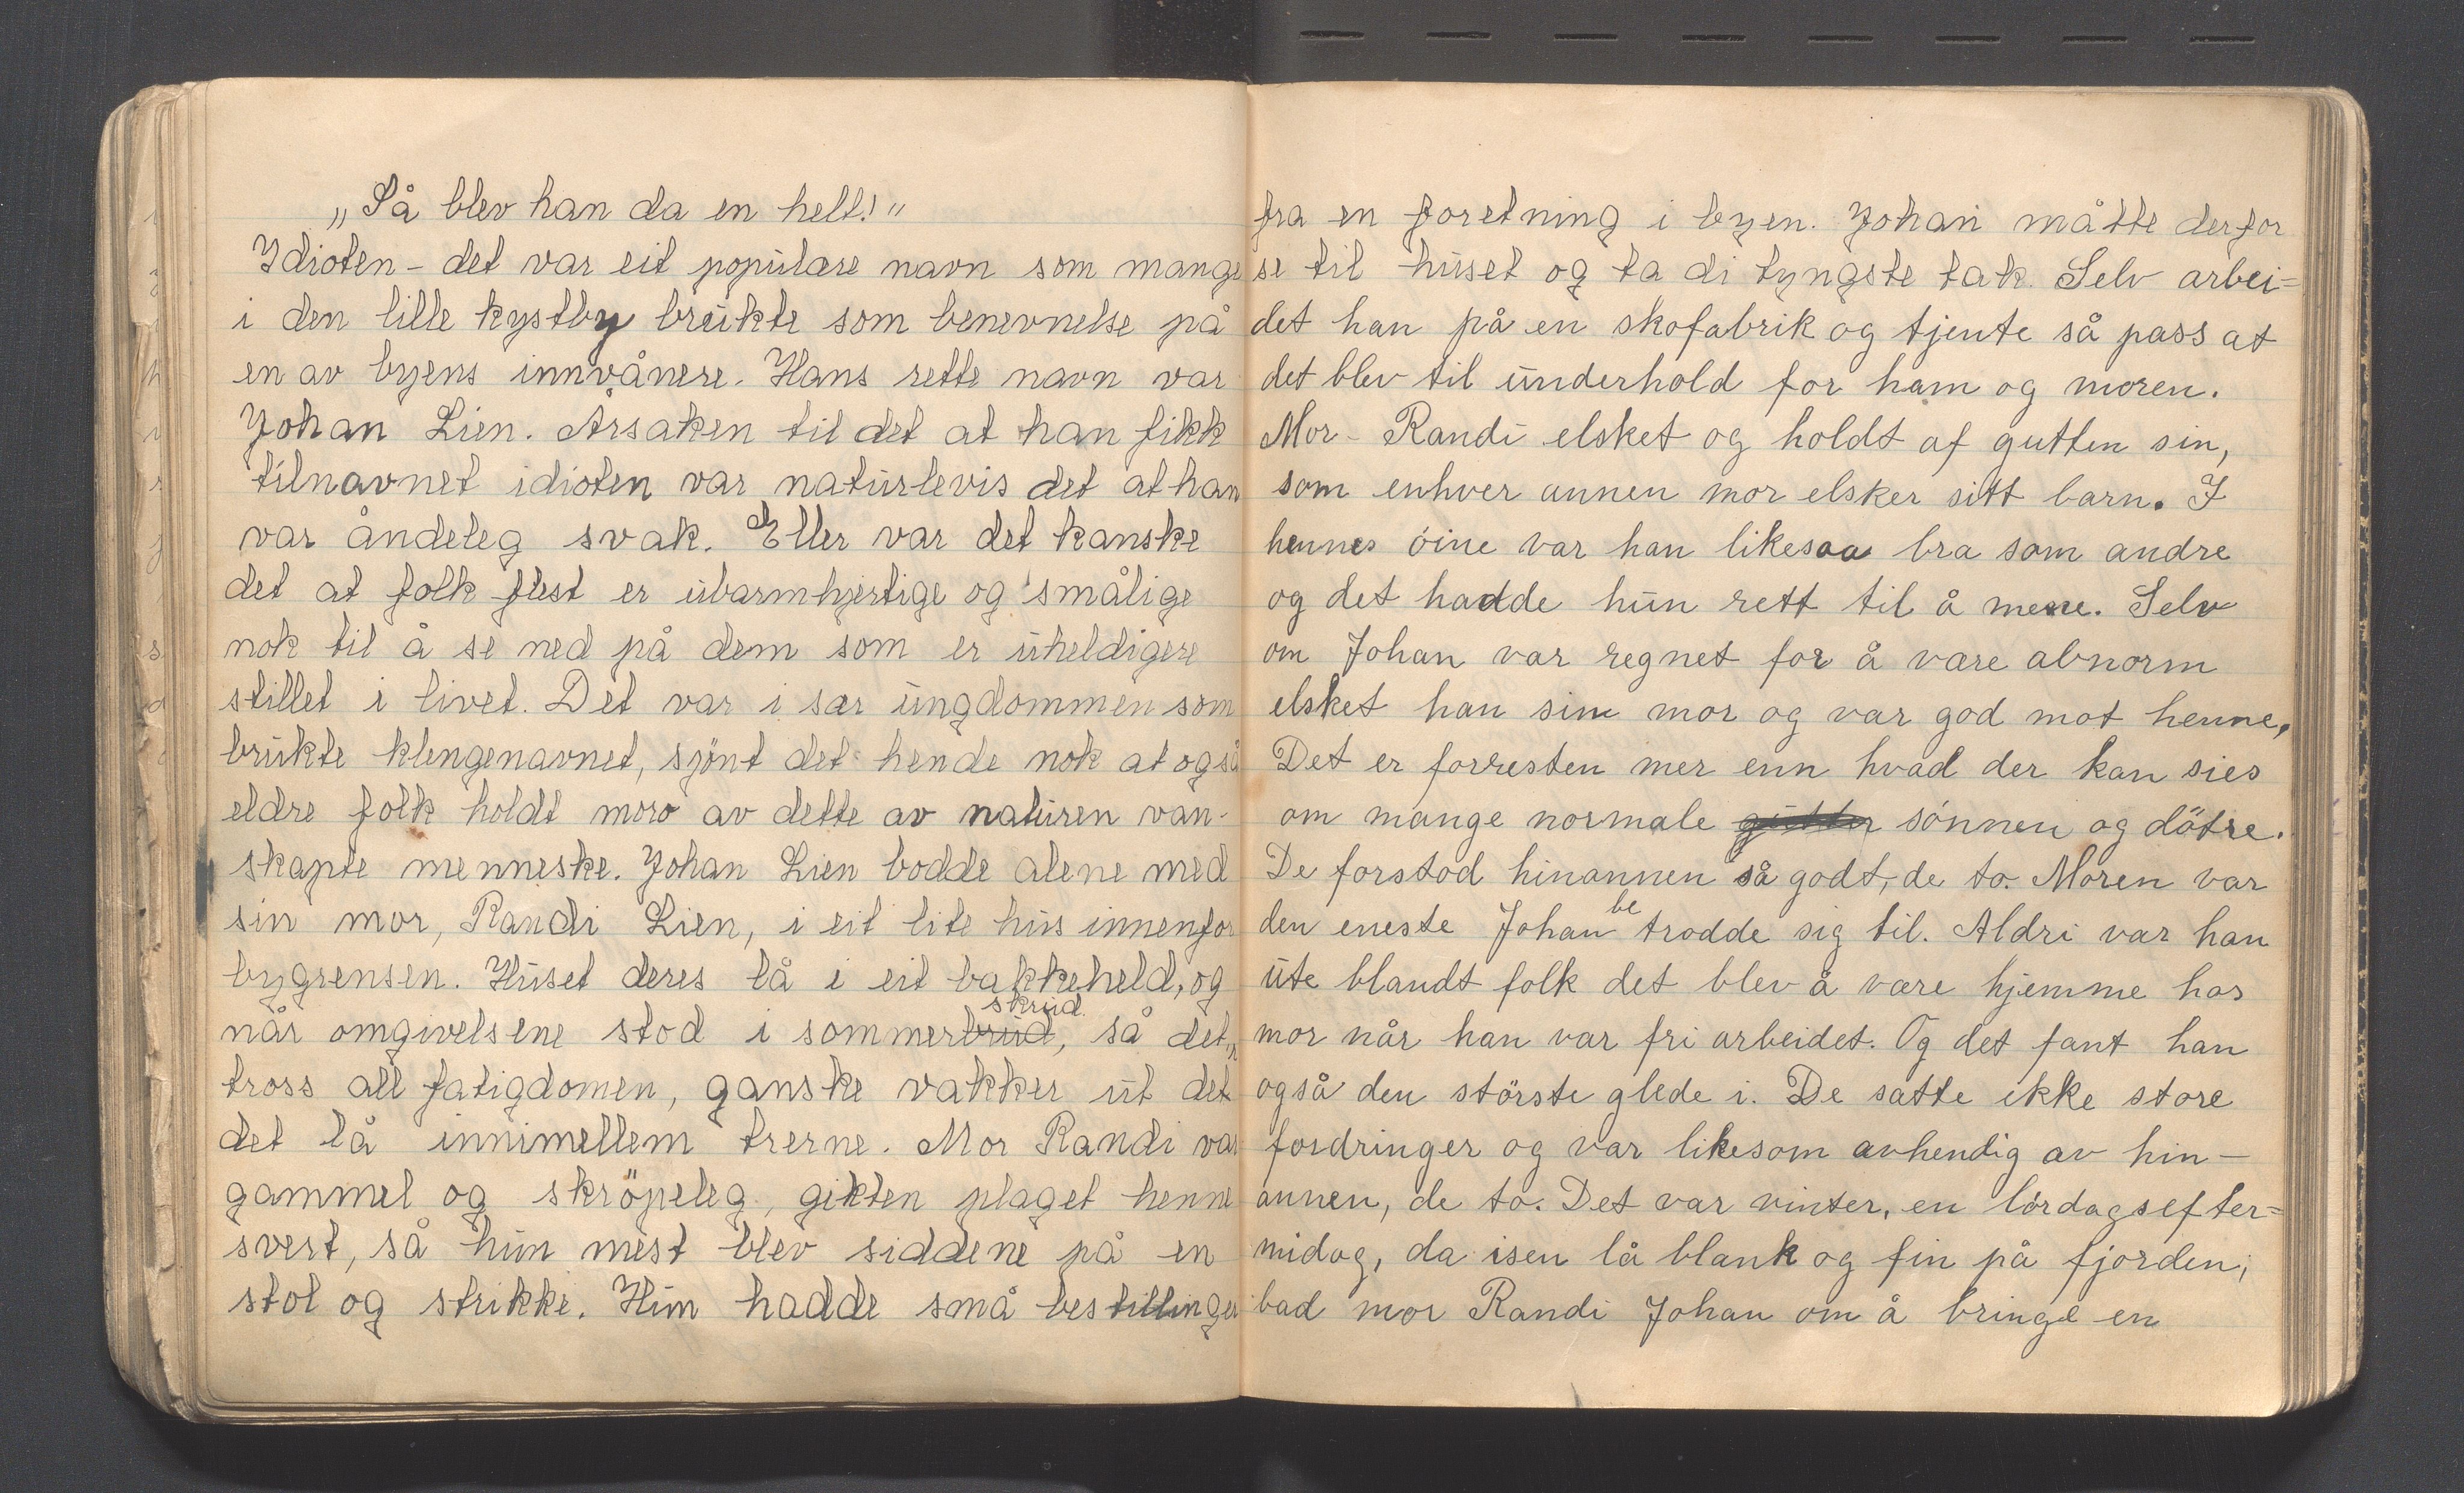 „Så blev han da en helt!"
Idioten - det var eit populære navn som mange
i den lille kystby brukte som benevnelse på
en av byens innvånere. Hans rette navn var
Johan Lien. Årsaken til det at han fikk
tilnavnet idioten var naturlevis det at han
var åndeleg svak. Eller var det kanske
det at folk flest er ubarmhjertige og smålige
nok til å se ned på dem som er uheldigere
stillet i livet. Det var i sær ungdommen som
brukte klengenavnet, sjönt det hende nok at også
eldre folk holdt moro av dette av naturen van-
skapte menneske. Johan Lien bodde alene med
sin mor, Randi Lien, i eit lite hus innenfor
bygrensen. Huset deres lå i eit bakkeheld, og
når omgivelsene stod i sommerbrud skrud, så det,
tross all fatigdomen, ganske vakker ut det
det lå innimellem trerne. Mor Randi var
gammel og skröpeleg, gikten plaget henne
svert, så hun mest blev siddene på en
stol og strikke. Hun hadde små bestillinger
fra en foretning i byen. Johan måtte derfor
se til huset og ta di tyngste tak. Selv arbei=
det han på en skofabrik og tjente så pass at
det blev til underhold for ham og moren.
Mor - Randi elsket og holdt af gutten sin,
som enhver annen mor elsker sitt barn. I
hennes óine var han likesaa bra som andre
og det hadde hun rett til å mene. Selv
om Johan var regnet for å være abnorm
elsket han sin mor og var god mot henne,
Det er forresten mer enn hvad der kan sies
om mange normale gutter sónnen og dötre.
De forstod hinannen så godt, de to. Moren var
den eneste Johan betrodde sig til. Aldri var han
ute blandt folk det blev å være hjemme hos
mor når han var fri arbeidet. Og det fant han
også den störste glede i. De satte ikke store
fordringer og var likesom avhendig av hin-
annen, de to. Det var vinter, en lórdagsefter=
midag, da isen lå blank og fin på fjorden,
bad mor Randi Johan om å bringe en